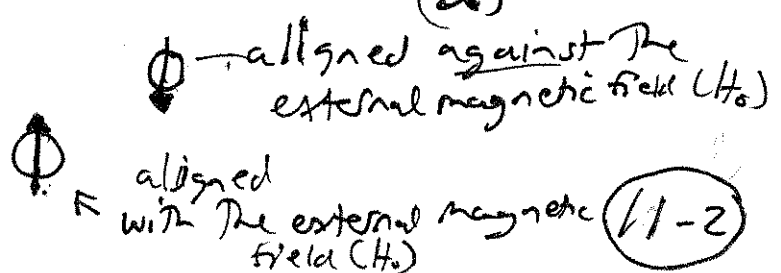 aligned against the
external magnetic field (H₀)
aligned
with the external magnetic
field (H₀)
11-2